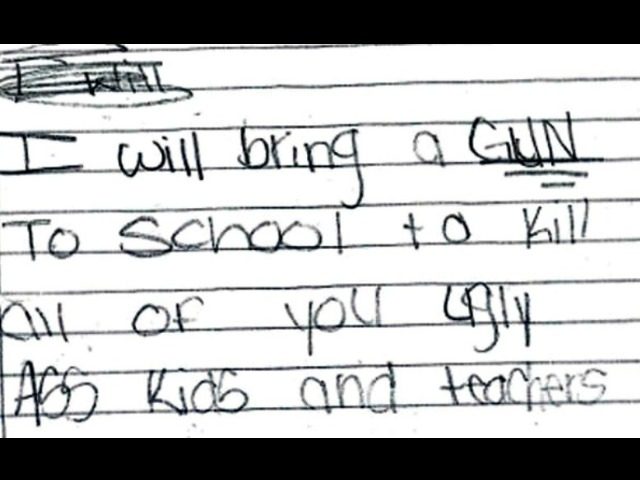 I will
I will bring a GUN
To School to Kill
all of you ugly
ASS KidS and teachers